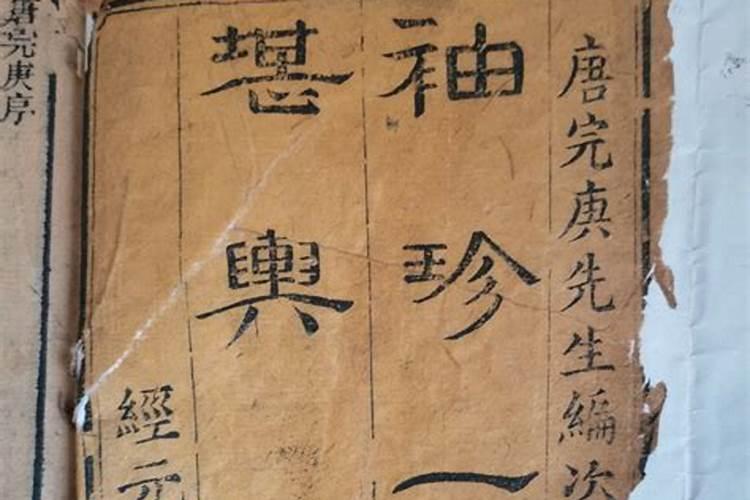 唐完庚先生編次
袖珍一
堪輿
經元
唐完庚序